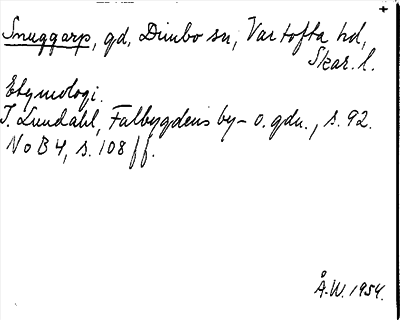 Snuggarp, gd, Dimbo sn, Vartofta hd,
Skar. l.
Etymologi.
I. Lundahl, Falbygdens by- o. gdn., s. 92.
NoB 4, s. 108 ff.
Å.W. 1954.